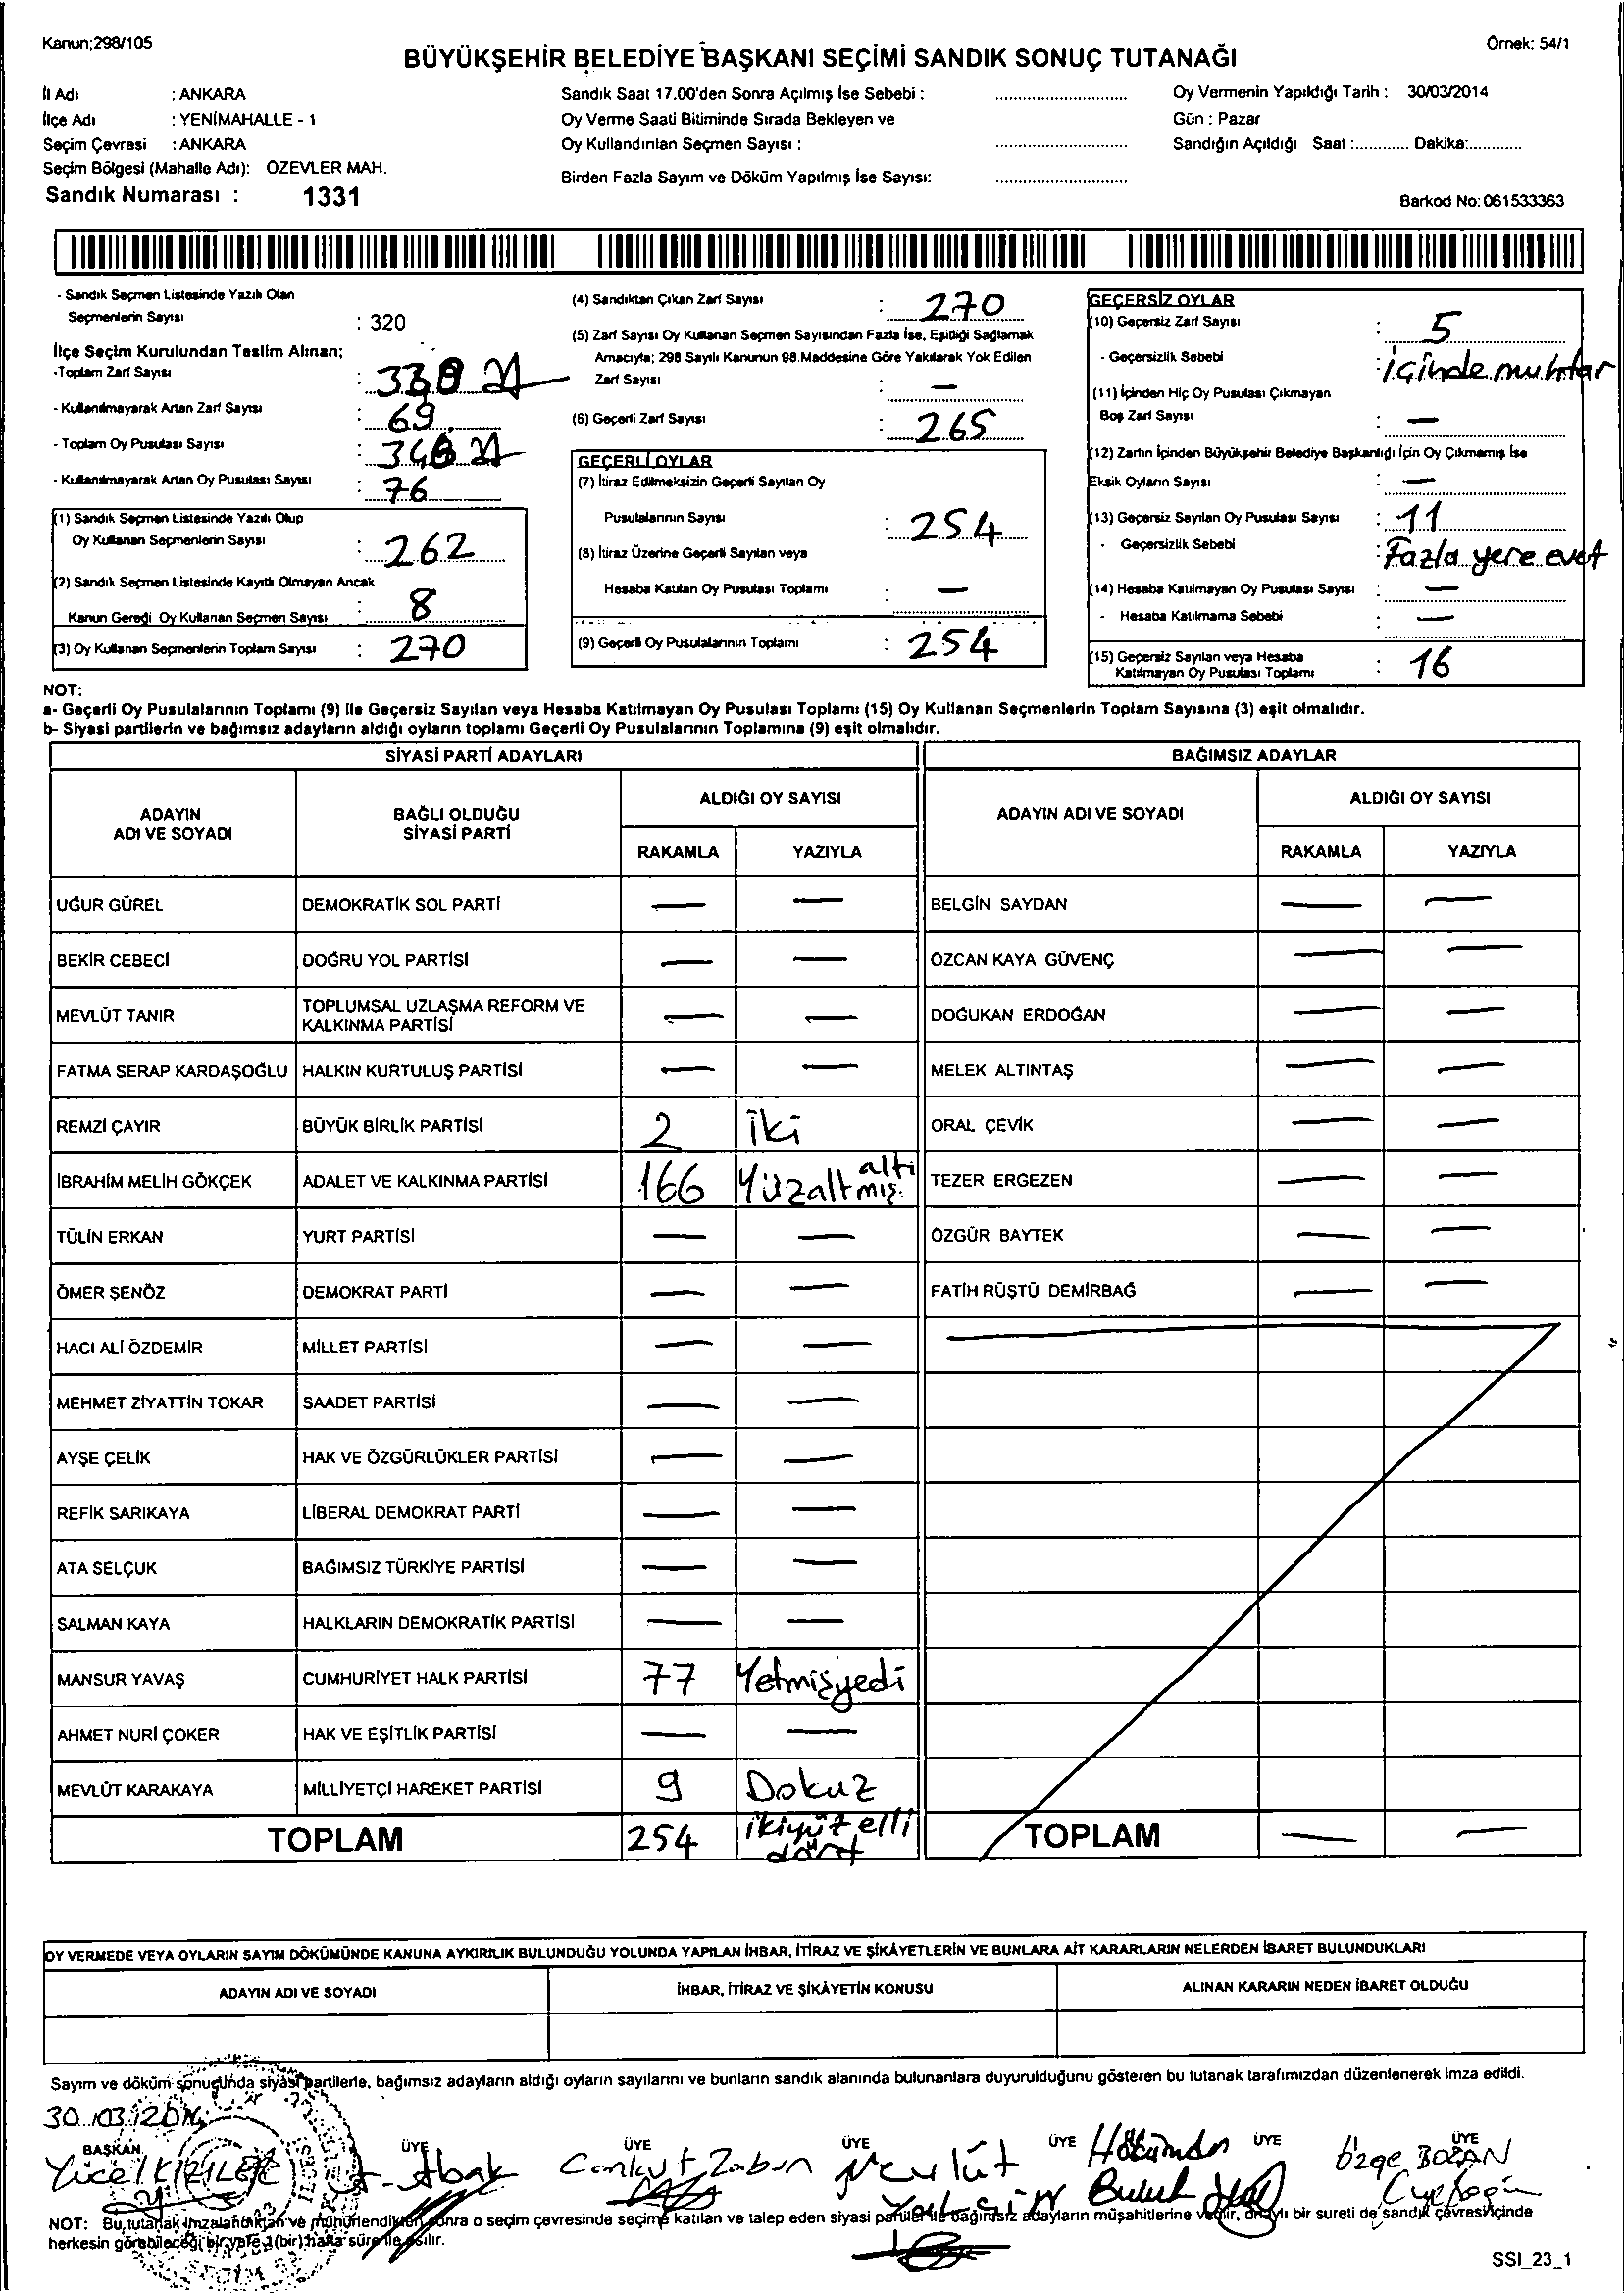 Kanun;298/105
Örnek: 54/1
BÜYÜKŞEHİR BELEDİYE BAŞKANI SEÇİMİ SANDIK SONUÇ TUTANAĞI
İl Adı : ANKARA
İlçe Adı : YENİMAHALLE - 1
Seçim Çevresi : ANKARA
Seçim Bölgesi (Mahalle Adı): ÖZEVLER MAH.
Sandık Numarası : 1331
Sandık Saat 17.00'den Sonra Açılmış İse Sebebi :
Oy Verme Saati Bitiminde Sırada Bekleyen ve
Oy Kullandırılan Seçmen Sayısı :
Birden Fazla Sayım ve Döküm Yapılmış İse Sayısı:
Oy Vermenin Yapıldığı Tarih : 30/03/2014
Gün : Pazar
Sandığın Açıldığı Saat :............ Dakika:............
Barkod No:061533363
- Sandık Seçmen Listesinde Yazılı Olan
Seçmenlerin Sayısı : 320
İlçe Seçim Kurulundan Teslim Alınan;
-Toplam Zarf Sayısı :
- Kullanılmayarak Artan Zarf Sayısı : 69
- Toplam Oy Pusulası Sayısı :
- Kullanılmayarak Artan Oy Pusulası Sayısı : 76
(1) Sandık Seçmen Listesinde Yazılı Olup
Oy Kullanan Seçmenlerin Sayısı : 262
(2) Sandık Seçmen Listesinde Kayıtlı Olmayan Ancak
Kanun Gereği Oy Kullanan Seçmen Sayısı : 8
(3) Oy Kullanan Seçmenlerin Toplam Sayısı : 270
(4) Sandıktan Çıkan Zarf Sayısı : 270
(5) Zarf Sayısı Oy Kullanan Seçmen Sayısından Fazla İse, Eşitliği Sağlamak
Amacıyla; 298 Sayılı Kanunun 98.Maddesine Göre Yakılarak Yok Edilen
Zarf Sayısı : —
(6) Geçerli Zarf Sayısı : 265
GEÇERLİ OYLAR
(7) İtiraz Edilmeksizin Geçerli Sayılan Oy
Pusulalarının Sayısı : 254
(8) İtiraz Üzerine Geçerli Sayılan veya
Hesaba Katılan Oy Pusulası Toplamı : —
(9) Geçerli Oy Pusulalarının Toplamı : 254
GEÇERSİZ OYLAR
(10) Geçersiz Zarf Sayısı : 5
- Geçersizlik Sebebi : içinde muhtar
(11) İçinden Hiç Oy Pusulası Çıkmayan
Boş Zarf Sayısı : —
(12) Zarfın İçinden Büyükşehir Belediye Başkanlığı İçin Oy Çıkmamış İse
Eksik Oyların Sayısı : —
(13) Geçersiz Sayılan Oy Pusulası Sayısı : 11
- Geçersizlik Sebebi : Fazla yere evet
(14) Hesaba Katılmayan Oy Pusulası Sayısı : —
- Hesaba Katılmama Sebebi : —
(15) Geçersiz Sayılan veya Hesaba
Katılmayan Oy Pusulası Toplamı : 16
NOT:
a- Geçerli Oy Pusulalarının Toplamı (9) ile Geçersiz Sayılan veya Hesaba Katılmayan Oy Pusulası Toplamı (15) Oy Kullanan Seçmenlerin Toplam Sayısına (3) eşit olmalıdır.
b- Siyasi partilerin ve bağımsız adayların aldığı oyların toplamı Geçerli Oy Pusulalarının Toplamına (9) eşit olmalıdır.
SİYASİ PARTİ ADAYLARI BAĞIMSIZ ADAYLAR
ADAYIN ADI VE SOYADI BAĞLI OLDUĞU SİYASİ PARTİ ALDIĞI OY SAYISI ADAYIN ADI VE SOYADI ALDIĞI OY SAYISI
RAKAMLA YAZIYLA RAKAMLA YAZIYLA
UĞUR GÜREL DEMOKRATİK SOL PARTİ — — BELGİN SAYDAN — —
BEKİR CEBECİ DOĞRU YOL PARTİSİ — — ÖZCAN KAYA GÜVENÇ — —
MEVLÜT TANIR TOPLUMSAL UZLAŞMA REFORM VE KALKINMA PARTİSİ — — DOĞUKAN ERDOĞAN — —
FATMA SERAP KARDAŞOĞLU HALKIN KURTULUŞ PARTİSİ — — MELEK ALTINTAŞ — —
REMZİ ÇAYIR BÜYÜK BİRLİK PARTİSİ 2 iki ORAL ÇEVİK — —
İBRAHİM MELİH GÖKÇEK ADALET VE KALKINMA PARTİSİ 166 Yüzaltmış altı TEZER ERGEZEN — —
TÜLİN ERKAN YURT PARTİSİ — — ÖZGÜR BAYTEK — —
ÖMER ŞENÖZ DEMOKRAT PARTİ — — FATİH RÜŞTÜ DEMİRBAĞ — —
HACI ALİ ÖZDEMİR MİLLET PARTİSİ — —
MEHMET ZİYATTİN TOKAR SAADET PARTİSİ — —
AYŞE ÇELİK HAK VE ÖZGÜRLÜKLER PARTİSİ — —
REFİK SARIKAYA LİBERAL DEMOKRAT PARTİ — —
ATA SELÇUK BAĞIMSIZ TÜRKİYE PARTİSİ — —
SALMAN KAYA HALKLARIN DEMOKRATİK PARTİSİ — —
MANSUR YAVAŞ CUMHURİYET HALK PARTİSİ 77 Yetmişyedi
AHMET NURİ ÇOKER HAK VE EŞİTLİK PARTİSİ — —
MEVLÜT KARAKAYA MİLLİYETÇİ HAREKET PARTİSİ 9 Dokuz
TOPLAM 254 ikiyüz elli dört TOPLAM — —
OY VERMEDE VEYA OYLARIN SAYIM DÖKÜMÜNDE KANUNA AYKIRILIK BULUNDUĞU YOLUNDA YAPILAN İHBAR, İTİRAZ VE ŞİKÂYETLERİN VE BUNLARA AİT KARARLARIN NELERDEN İBARET BULUNDUKLARI
ADAYIN ADI VE SOYADI İHBAR, İTİRAZ VE ŞİKÂYETİN KONUSU ALINAN KARARIN NEDEN İBARET OLDUĞU
Sayım ve döküm sonucunda siyasi partilerle, bağımsız adayların aldığı oyların sayılarını ve bunların sandık alanında bulunanlara duyurulduğunu gösteren bu tutanak tarafımızdan düzenlenerek imza edildi.
30/03/2014
BAŞKAN ÜYE ÜYE ÜYE ÜYE ÜYE ÜYE
Yücel Abak Cankut Mevlüt Bulut Özge BOZAN
NOT: Bu tutanak imzalandıktan ve mühürlendikten sonra o seçim çevresinde seçime katılan ve talep eden siyasi partiler ile bağımsız adayların müşahitlerine verilir, onaylı bir sureti de sandık çevresi içinde
herkesin görebileceği bir yere 1(bir) hafta süre ile asılır.
SSI_23_1